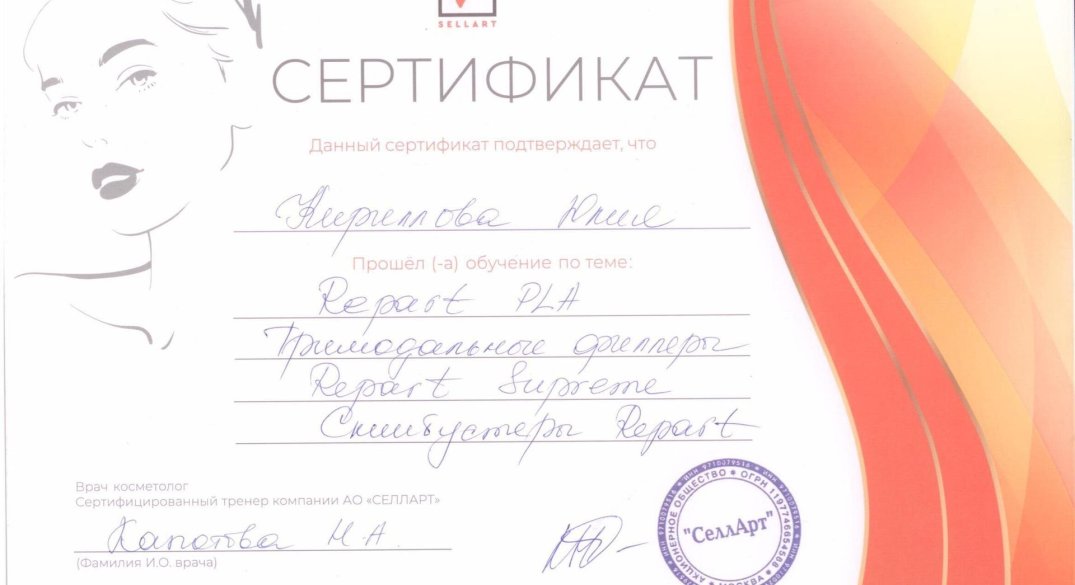 SELLART
СЕРТИФИКАТ
Данный сертификат подтверждает, что
Кириллова Юлия
Прошёл (-а) обучение по теме:
Repart PLA
Тримодальные филлеры
Repart Supreme
Скинбустеры Repart
Врач косметолог
Сертифицированный тренер компании АО «СЕЛЛАРТ»
Н.А.
(Фамилия И.О. врача)
АКЦИОНЕРНОЕ ОБЩЕСТВО * ОГРН 1197746654588
"СеллАрт"
МОСКВА
ИНН 9710079516